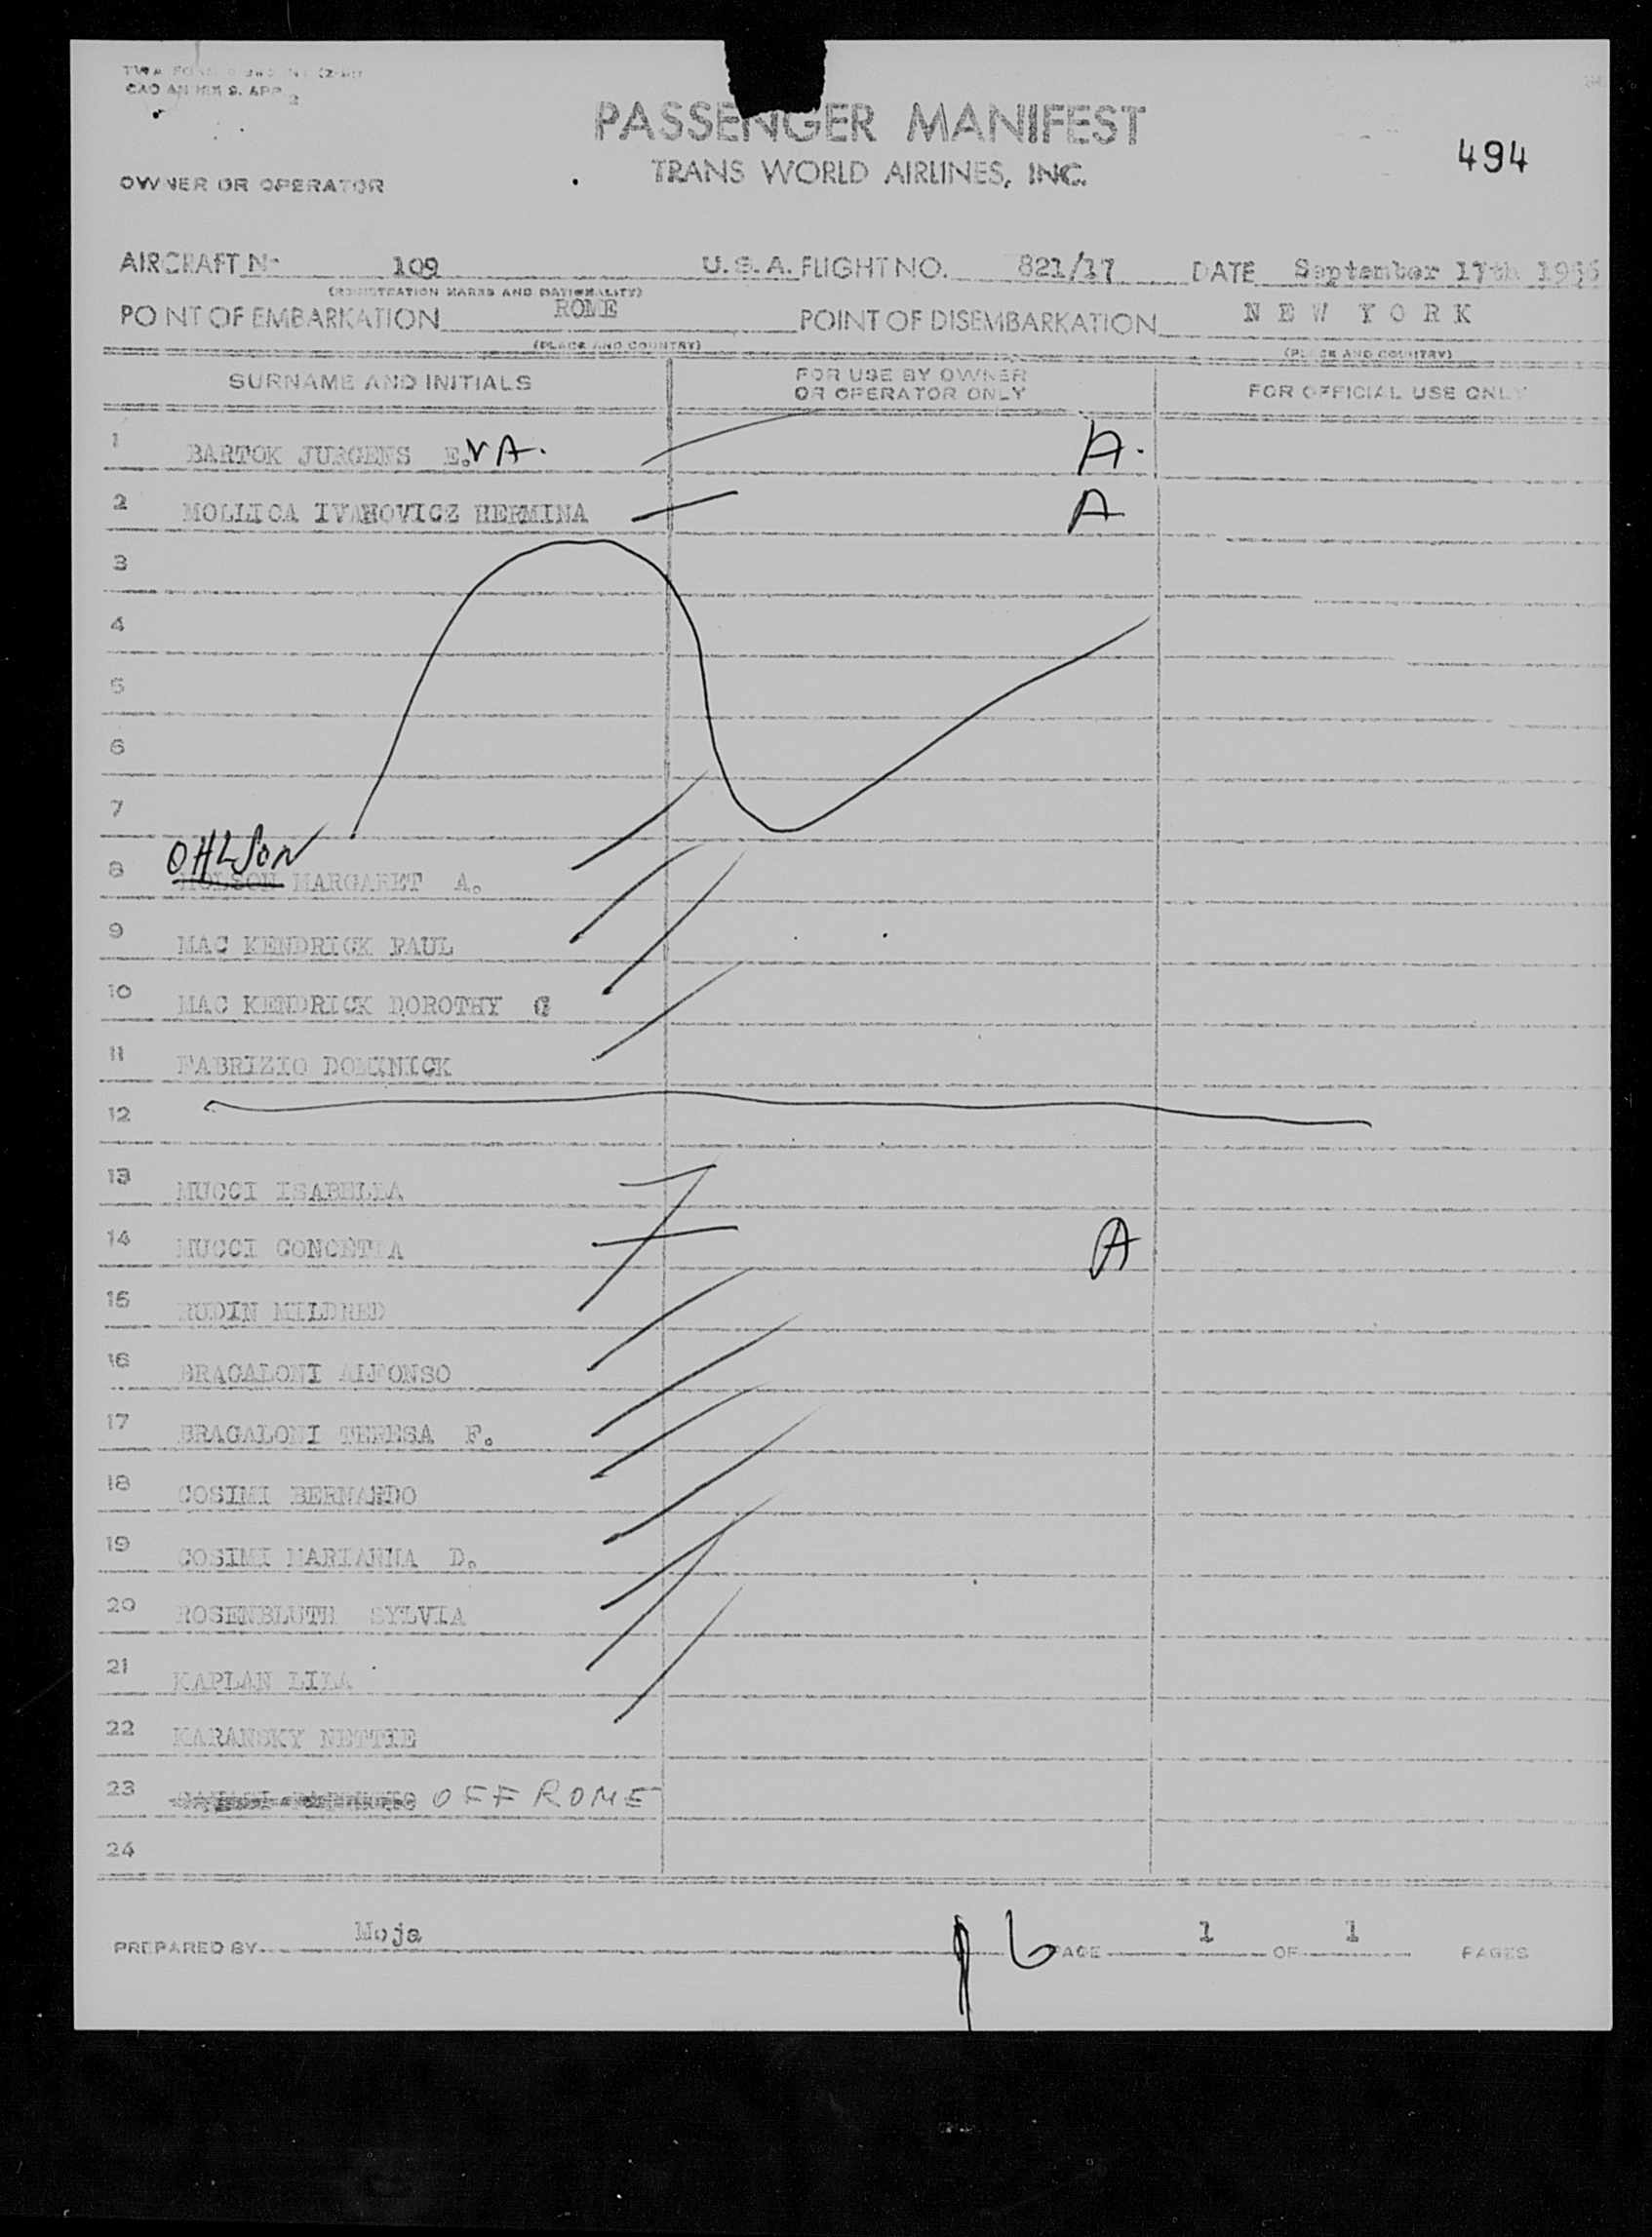 CAO ANNEX 9. APP 2
PASSENGER MANIFEST
TRANS WORLD AIRLINES, INC.
494
OWNER OR OPERATOR
AIRCRAFT No 109 U.S.A. FLIGHT NO. 821/17 DATE September 17th 1956
(REGISTRATION MARKS AND NATIONALITY)
POINT OF EMBARKATION ROME POINT OF DISEMBARKATION NEW YORK
(PLACE AND COUNTRY) (PLACE AND COUNTRY)
SURNAME AND INITIALS FOR USE BY OWNER OR OPERATOR ONLY FOR OFFICIAL USE ONLY
1 BARTOK JURGENS E.VA. A.
2 MOLLICA IVANOVICZ HERMINA A
3
4
5
6
7
OHLSON
8 MARGARET A.
9 MAC KENDRICK PAUL
10 MAC KENDRICK DOROTHY G
11 FABRIZIO DOMINICK
12
13 MUCCI ISABELLA
14 MUCCI CONCETTA A
15 RUDIN MILDRED
16 BRAGALONI ALFONSO
17 BRAGALONI TERESA F.
18 COSIMI BERNARDO
19 COSIMI MARIANNA D.
20 ROSENBLUTH SYLVIA
21 KAPLAN
22 KARANSKY NETTIE
23 OFF ROME
24
PREPARED BY Moja PAGE 1 OF 1 PAGES